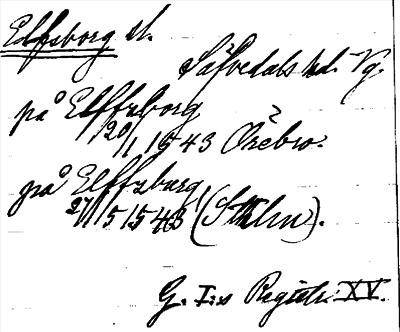 Elfsborg sl.
Säfvedals hd. Vg.
på Elffzborg
20/1 1543 Örebro.
på Elffzburg
27/5 1543 (Sthlm).
G. I:s Registr. XV.